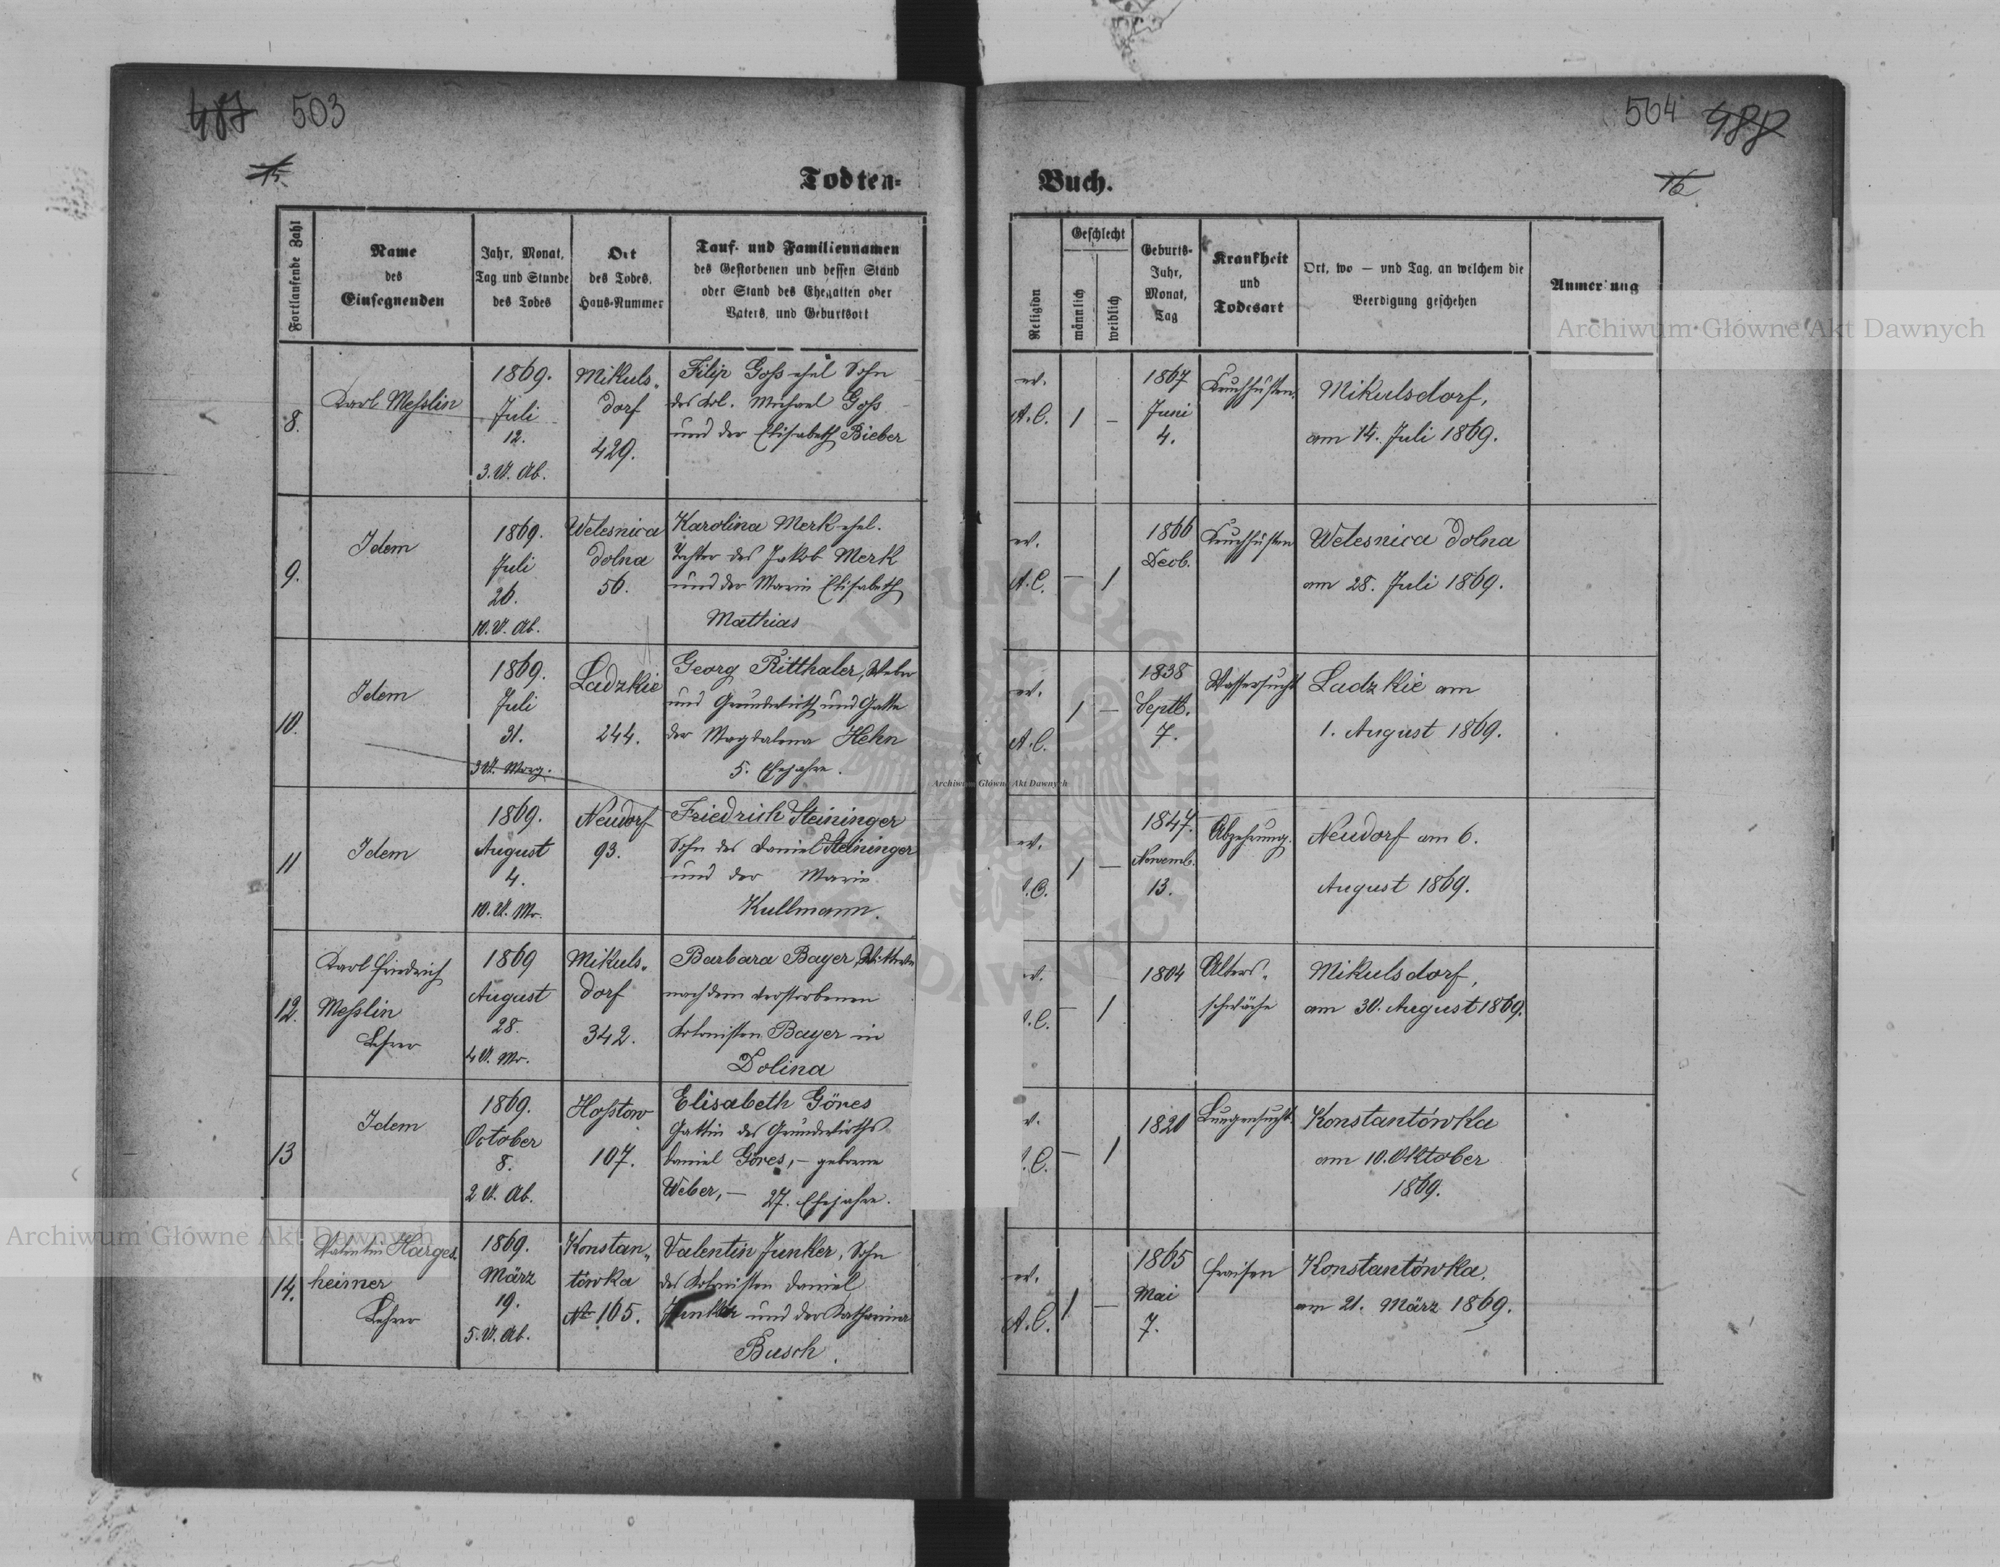 487 503
15.
Todten-
Fortlaufende Zahl
Name
des
Einsegnenden
Jahr, Monat,
Tag und Stunde
des Todes
Ort
des Todes,
Haus-Nummer
Tauf- und Familiennamen
des Gestorbenen und dessen Stand
oder Stand des Ehegatten oder
Vaters, und Geburtsort
8.
Karl Messlin
1869.
Juli
12.
3. U. Ab.
Mikuls-
dorf
429.
Filip Goss ehel Sohn
des Kol. Michael Goss
und der Elisabeth Bieber
9.
Idem
1869.
Juli
26.
10. U. Ab.
Welesnica
dolna
56.
Karolina Merk ehel.
Tochter des Jakob Merk
und der Maria Elisabeth
Mathias
10.
Idem
1869.
Juli
31.
3 U. Morg.
Ladzkie
244.
Georg Ritthaler, Weber
und Grundwirth und Gatte
der Magdalena Hehn
5. Ehejahre.
11
Idem
1869.
August
4.
10. U. Mr.
Neudorf
93.
Friedrich Steininger
Sohn des Daniel Steininger
und der Maria
Kullmann.
12.
Karl Friedrich
Messlin
Lehrer
1869
August
28.
4 U. Mr.
Mikuls-
dorf
342.
Barbara Bayer, Wittwe
nach dem verstorbenen
Kolonisten Bayer in
Dolina
13
Idem
1869.
October
8.
2 U. Ab.
Hosstow
107.
Elisabeth Göres
Gattin des Grundwirths
Daniel Göres, – geborne
Weber, – 27. Ehejahre.
14.
Valentin Harges-
heimer
Lehrer
1869.
März
19.
5. U. Ab.
Konstan-
tówka
Nr 165.
Valentin Junker, Sohn
des Kolonisten Daniel
Junker und der Katharina
Busch.
504 488
16
Buch.
Religion
Geschlecht
männlich
weiblich
Geburts-
Jahr,
Monat,
Tag
Krankheit
und
Todesart
Ort, wo — und Tag, an welchem die
Beerdigung geschehen
Anmerkung
ev.
A.C.
1
–
1867
Juni
4.
Keuchhusten.
Mikulsdorf,
am 14. Juli 1869.
ev.
A.C.
–
1
1866
Decb.
Keuchhusten
Welesnica dolna
am 28. Juli 1869.
ev.
A.C.
1
–
1838
Septb.
7.
Wassersucht
Ladzkie am
1. August 1869.
ev.
A.C.
1
–
1847.
Novemb.
13.
Abzehrung.
Neudorf am 6.
August 1869.
ev.
A.C.
–
1
1804
Alters-
schwäche
Mikulsdorf,
am 30. August 1869.
ev.
A.C.
–
1
1820
Lungensucht.
Konstantówka
am 10. Oktober
1869.
ev.
A.C.
1
–
1865
Mai
7.
Fraisen
Konstantówka,
am 21. März 1869.
Archiwum Główne Akt Dawnych
Archiwum Główne Akt Dawnych
Archiwum Główne Akt Dawnych